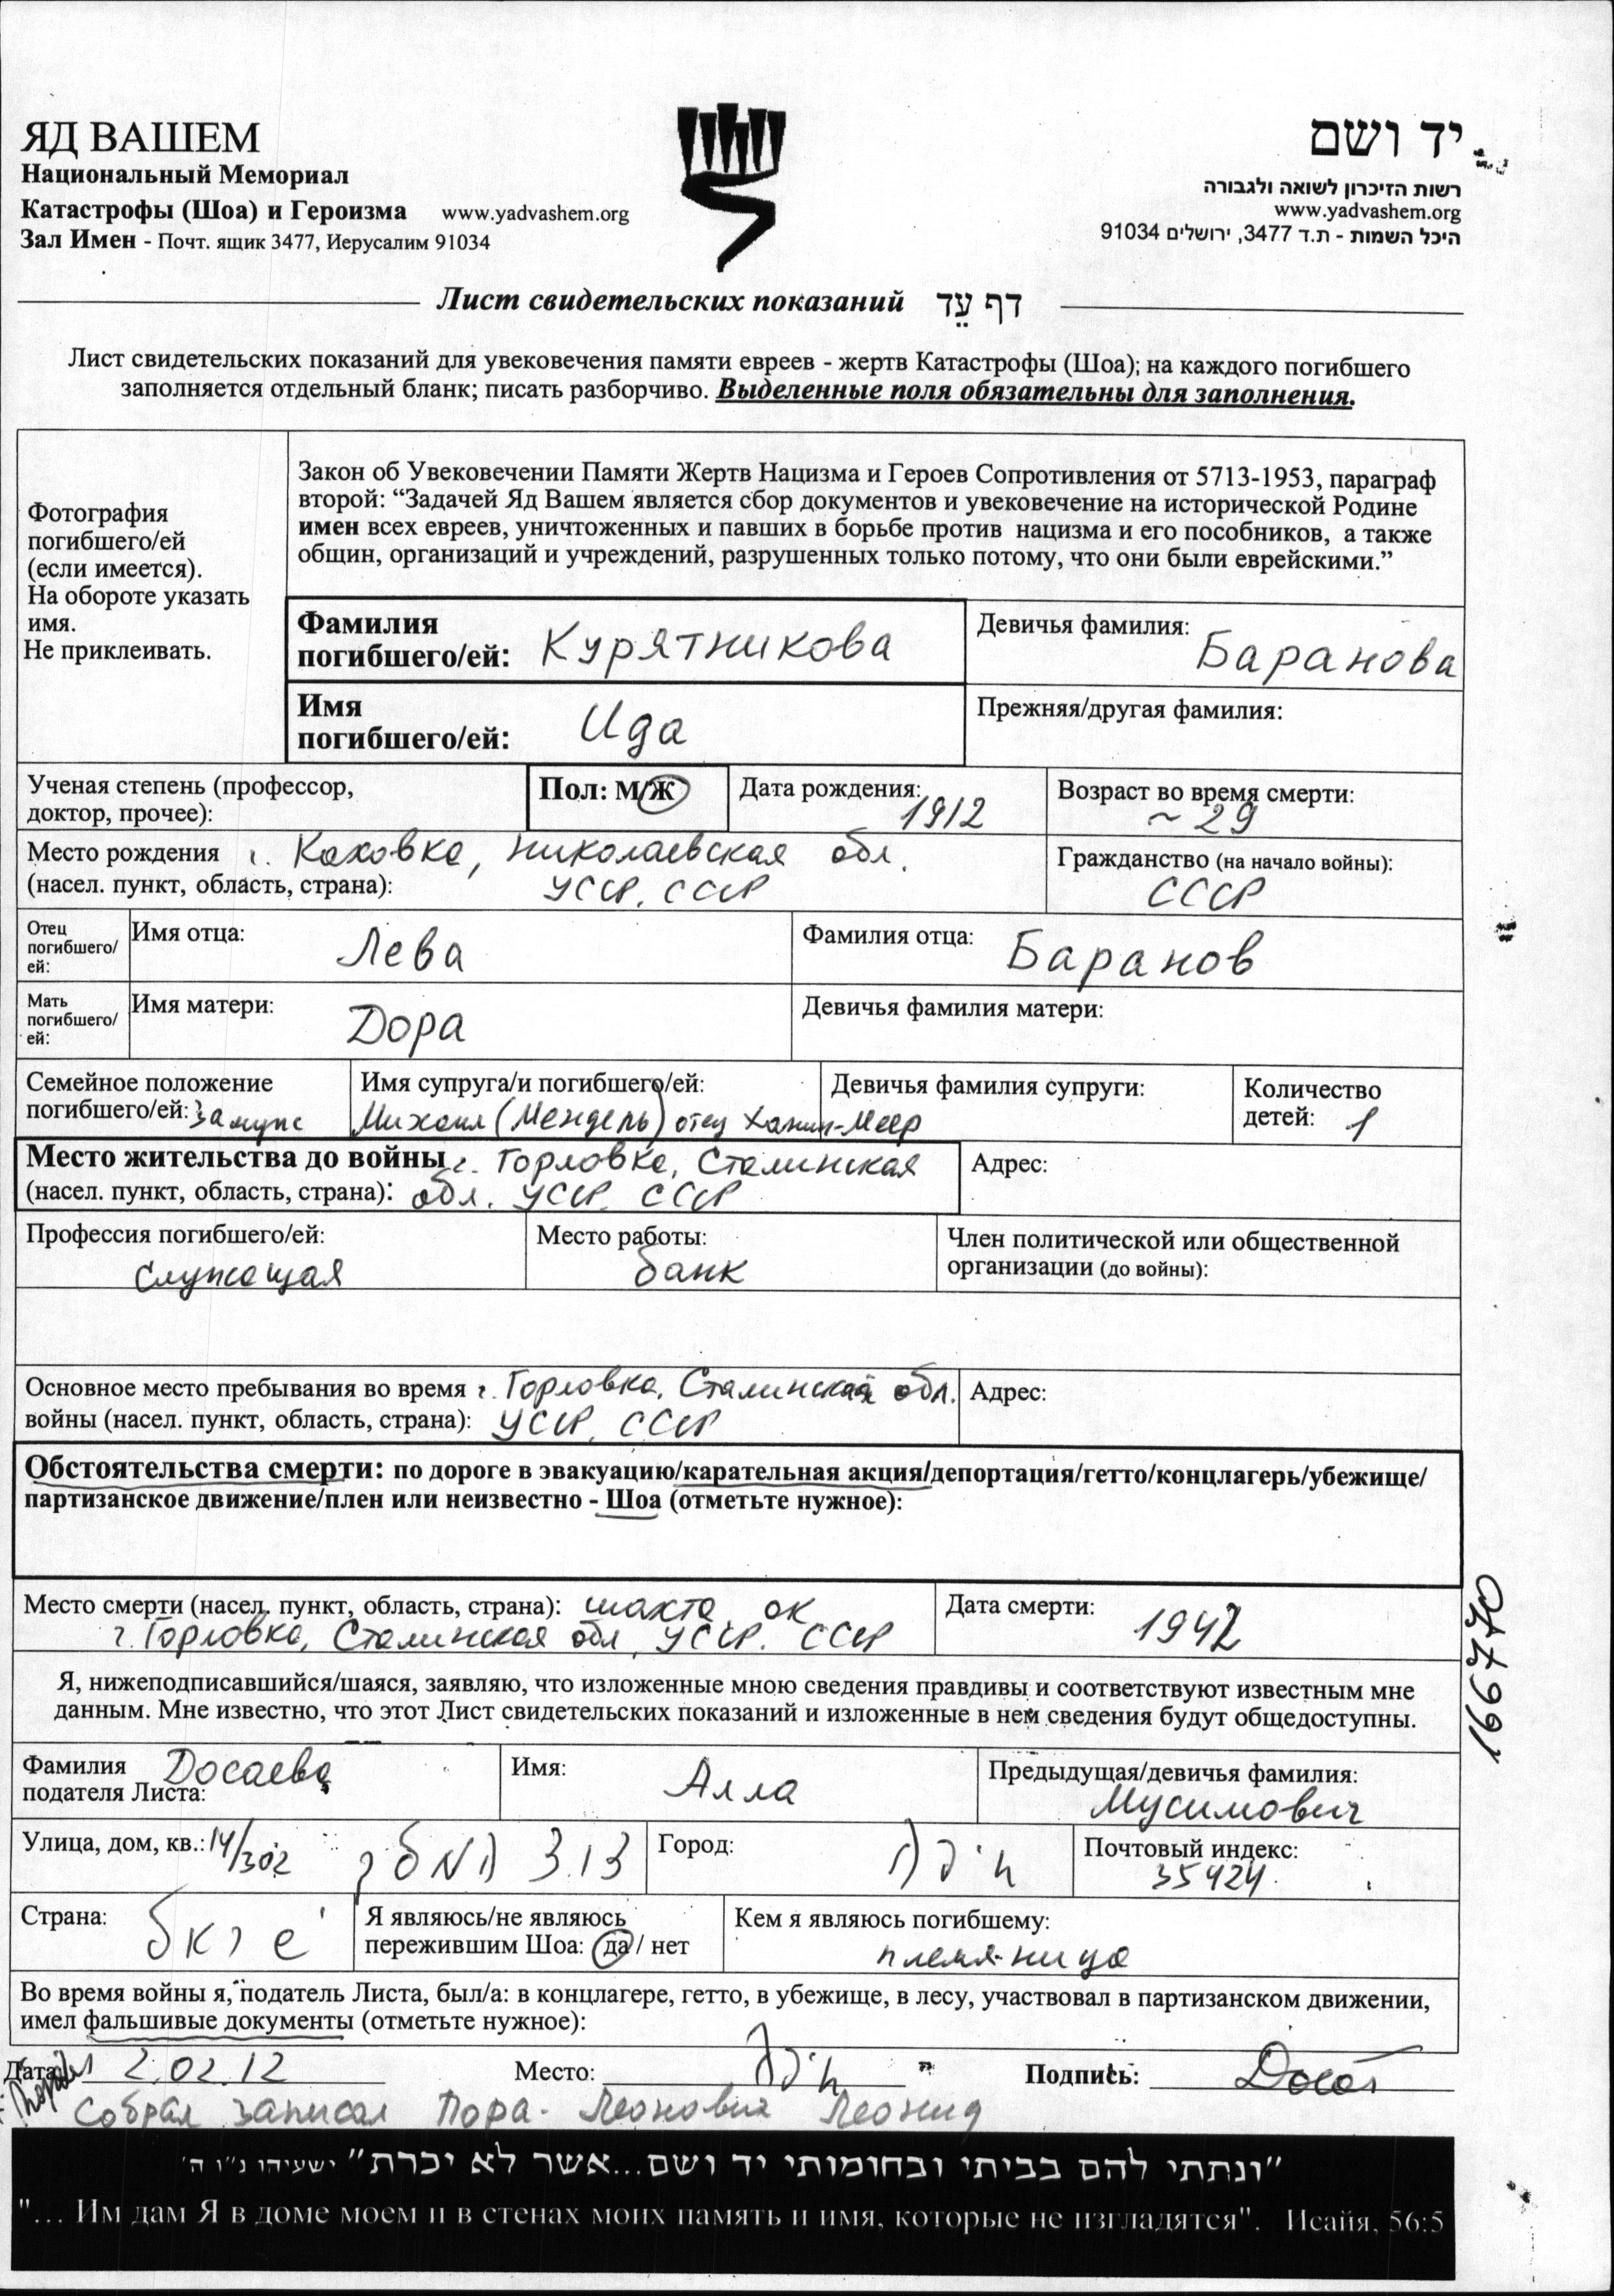 ЯД ВАШЕМ
Национальный Мемориал
Катастрофы (Шоа) и Героизма www.yadvashem.org
Зал Имен - Почт. ящик 3477, Иерусалим 91034
יד ושם
רשות הזיכרון לשואה ולגבורה
www.yadvashem.org
היכל השמות - ת.ד 3477, ירושלים 91034
Лист свидетельских показаний דף עֵד
Лист свидетельских показаний для увековечения памяти евреев - жертв Катастрофы (Шоа); на каждого погибшего
заполняется отдельный бланк; писать разборчиво. Выделенные поля обязательны для заполнения.
Фотография
погибшего/ей
(если имеется).
На обороте указать
имя.
Не приклеивать.
Закон об Увековечении Памяти Жертв Нацизма и Героев Сопротивления от 5713-1953, параграф
второй: “Задачей Яд Вашем является сбор документов и увековечение на исторической Родине
имен всех евреев, уничтоженных и павших в борьбе против нацизма и его пособников, а также
общин, организаций и учреждений, разрушенных только потому, что они были еврейскими.”
Фамилия
погибшего/ей: Курятникова
Девичья фамилия:
Баранова
Имя
погибшего/ей: Ида
Прежняя/другая фамилия:
Ученая степень (профессор,
доктор, прочее):
Пол: М/Ж
Дата рождения:
1912
Возраст во время смерти:
~ 29
Место рождения г. Каховка, Николаевская обл.
(насел. пункт, область, страна): УССР. СССР
Гражданство (на начало войны):
СССР
Отец
погибшего/
ей:
Имя отца: Лева
Фамилия отца: Баранов
Мать
погибшего/
ей:
Имя матери: Дора
Девичья фамилия матери:
Семейное положение
погибшего/ей: замуж
Имя супруга/и погибшего/ей:
Михаил (Мендель) отец Хаим-Меер
Девичья фамилия супруги:
Количество
детей: 1
Место жительства до войны г. Горловка, Сталинская
(насел. пункт, область, страна): обл. УССР. СССР
Адрес:
Профессия погибшего/ей:
служащая
Место работы:
банк
Член политической или общественной
организации (до войны):
Основное место пребывания во время г. Горловка, Сталинская обл.
войны (насел. пункт, область, страна): УССР. СССР
Адрес:
Обстоятельства смерти: по дороге в эвакуацию/карательная акция/депортация/гетто/концлагерь/убежище/
партизанское движение/плен или неизвестно - Шоа (отметьте нужное):
Место смерти (насел. пункт, область, страна): шахта
г. Горловка, Сталинская обл, УССР. СССР
Дата смерти:
1942
166770
Я, нижеподписавшийся/шаяся, заявляю, что изложенные мною сведения правдивы и соответствуют известным мне
данным. Мне известно, что этот Лист свидетельских показаний и изложенные в нем сведения будут общедоступны.
Фамилия Досаева
подателя Листа:
Имя:
Алла
Предыдущая/девичья фамилия:
Мусимович
Улица, дом, кв.: 14/302
Город: חיפה
Почтовый индекс:
35424
Страна:
Я являюсь/не являюсь
пережившим Шоа: да / нет
Кем я являюсь погибшему:
племянница
Во время войны я, податель Листа, был/а: в концлагере, гетто, в убежище, в лесу, участвовал в партизанском движении,
имел фальшивые документы (отметьте нужное):
Дата: 2.02.12
Место: חיפה
Подпись:
Собрал записал Пора-Леонович Леонид
״ונתתי להם בביתי ובחומותי יד ושם...אשר לא יכרת״ ישעיהו נ״ו ה׳
"... Им дам Я в доме моем и в стенах моих память и имя, которые не изгладятся". Исайя, 56:5